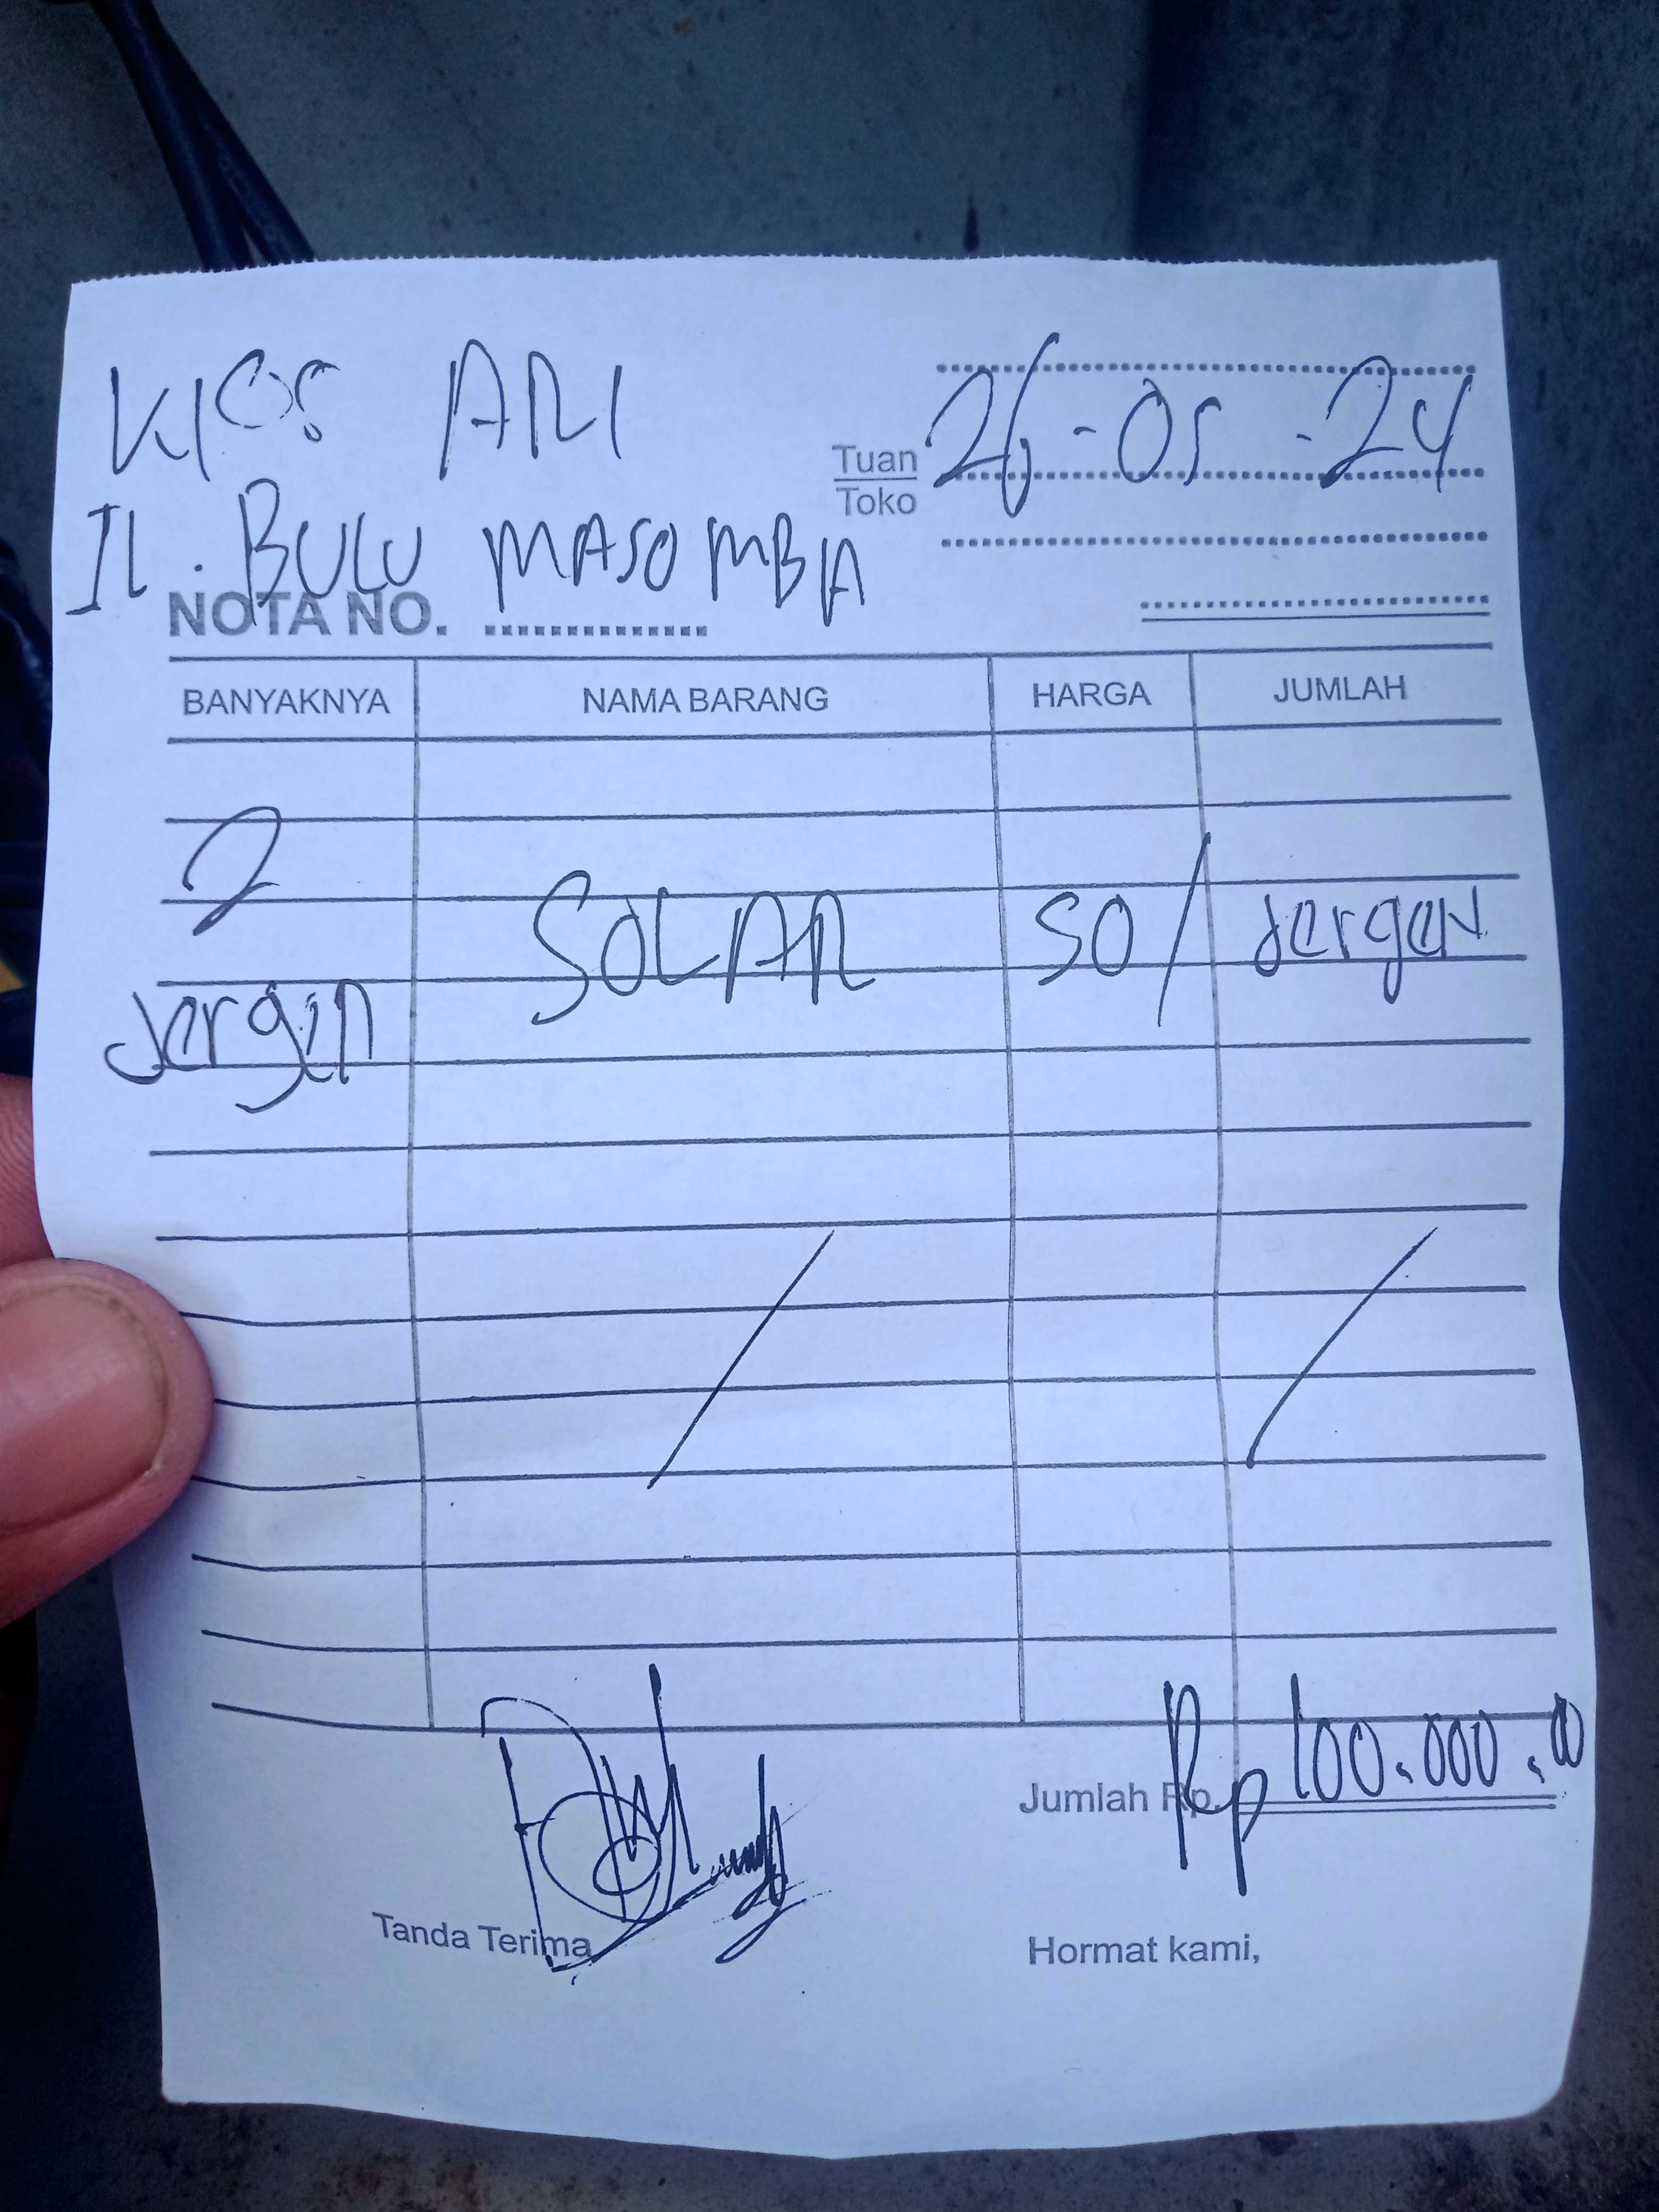 KIOS ARI
26-05-24
Tuan
Toko
JL. BULU MASOMBA
NOTA NO. ..............
BANYAKNYA NAMA BARANG HARGA JUMLAH
2 SOLAR 50 / Jergen
Jergen
Jumlah Rp. Rp 100.000.00
Tanda Terima
Hormat kami,